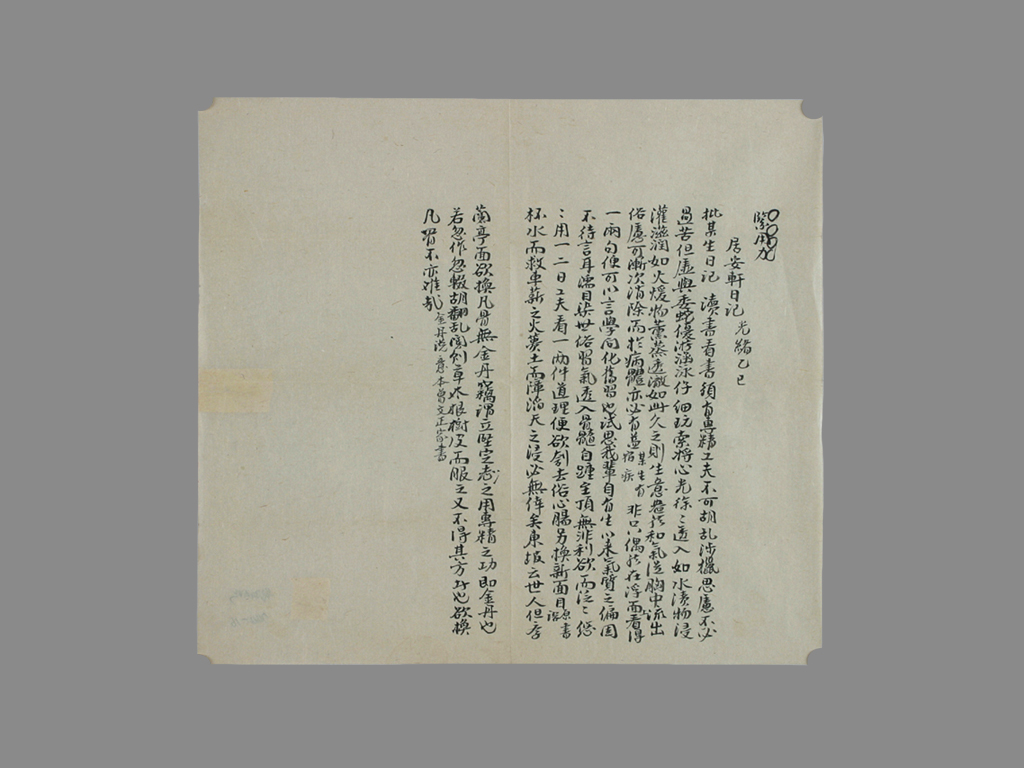 居安軒日記光緒乙巳
批某生日記 讀書看書須有專精工夫不可胡乱涉獵思慮不必
過苦但虛與委蛇優游涵泳仔細玩索將心光徐〻透入如水漬物浸
灌滋潤如火煖物薰蒸透澈如此久之則生意發於和氣從胸中流出
俗慮可漸次消除而於病體亦必有益某生有宿疾非只偶然在浮面看得
一兩句便可以言學問化舊習也試思我輩自有生以來氣質之偏固
不待言耳濡目染世俗習氣透入骨髓自踵至頂無非利欲而泛〻悠
〻用一二日工夫看一兩件道理便欲刳去俗心腸另換新面目源書
杯水而救車薪之火簣土而障滔天之浸必無倖矣東坡云世人但學
蘭亭面欲換凡骨無金丹竊謂立堅定志之用專精之功即金丹也
若忽作忽輟胡翻乱閱剉草木根樹皮而服之又不得其方皮也欲換
凡骨不亦難哉金丹說意本曾文正家書